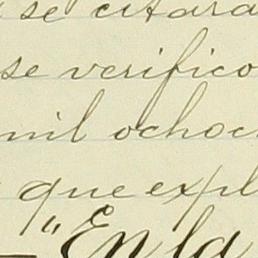 se citara
se verifico
mil ochoc
que expl
"En la